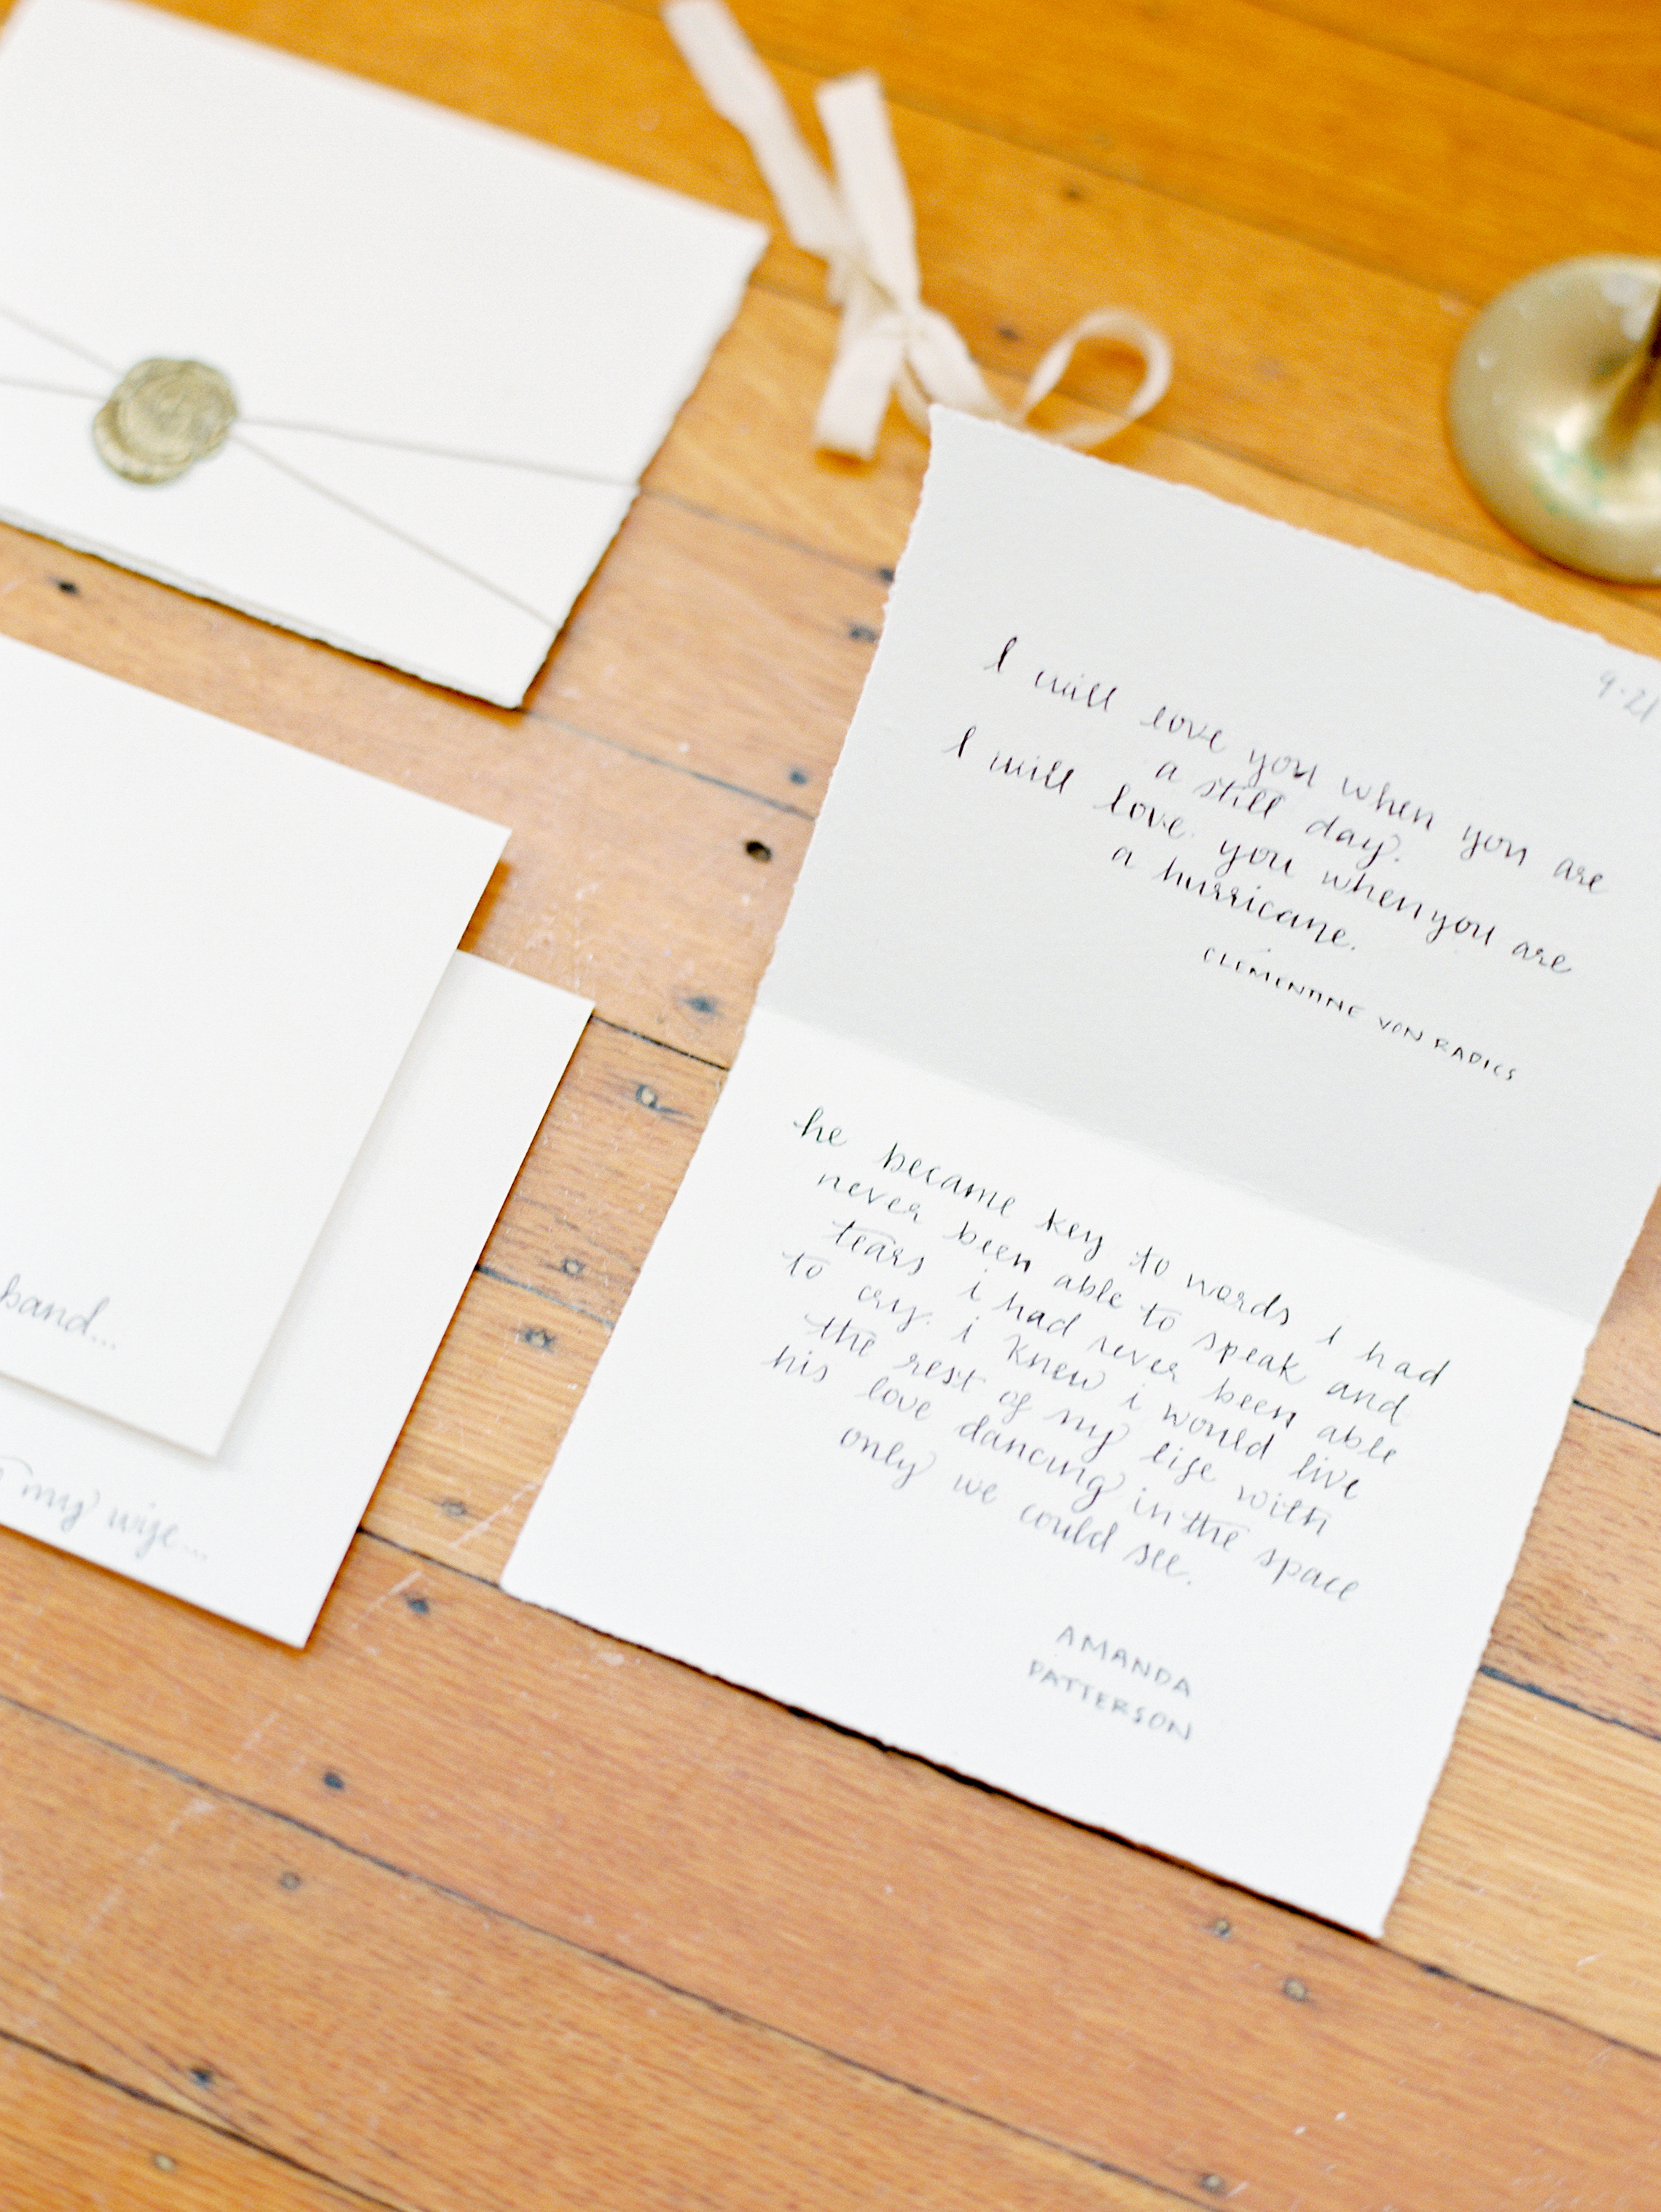 9.21
I will love you when you are
a still day.
I will love you when you are
a hurricane.
CLEMENTINE VON RADICS
he became key to words i had
never been able to speak and
tears i had never been able
to cry. i knew i would live
the rest of my life with
his love dancing in the space
only we could see.
AMANDA
PATTERSON
band...
my wife...